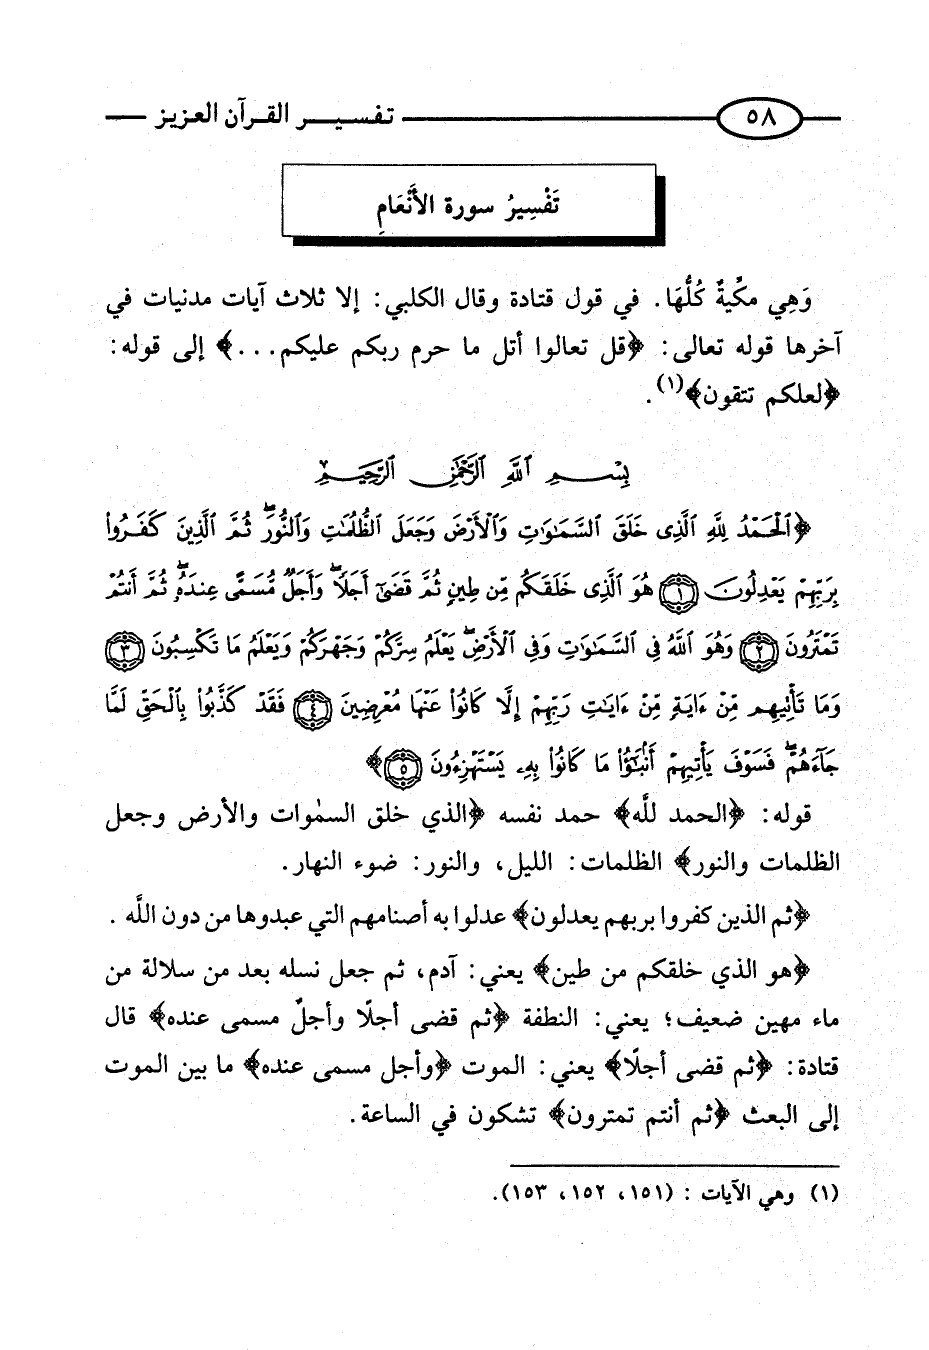 ٥٨
تفسير القرآن العزيز
تَفْسِيرُ سورة الأَنْعَامِ
وَهِي مكِّيةٌ كُلُّهَا. في قول قتادة وقال الكلبي: إلا ثلاث آيات مدنيات في
آخرها قوله تعالى: ﴿قل تعالوا أتل ما حرم ربكم عليكم...﴾ إلى قوله:
﴿لعلكم تتقون﴾(١).
بِسْمِ ٱللَّهِ ٱلرَّحْمَٰنِ ٱلرَّحِيمِ
﴿ٱلْحَمْدُ لِلَّهِ ٱلَّذِى خَلَقَ ٱلسَّمَٰوَٰتِ وَٱلْأَرْضَ وَجَعَلَ ٱلظُّلُمَٰتِ وَٱلنُّورَۖ ثُمَّ ٱلَّذِينَ كَفَرُوا۟
بِرَبِّهِمْ يَعْدِلُونَ ١ هُوَ ٱلَّذِى خَلَقَكُم مِّن طِينٍ ثُمَّ قَضَىٰٓ أَجَلًاۖ وَأَجَلٌ مُّسَمًّى عِندَهُۥۖ ثُمَّ أَنتُمْ
تَمْتَرُونَ ٢ وَهُوَ ٱللَّهُ فِى ٱلسَّمَٰوَٰتِ وَفِى ٱلْأَرْضِۖ يَعْلَمُ سِرَّكُمْ وَجَهْرَكُمْ وَيَعْلَمُ مَا تَكْسِبُونَ ٣
وَمَا تَأْتِيهِم مِّنْ ءَايَةٍ مِّنْ ءَايَٰتِ رَبِّهِمْ إِلَّا كَانُوا۟ عَنْهَا مُعْرِضِينَ ٤ فَقَدْ كَذَّبُوا۟ بِٱلْحَقِّ لَمَّا
جَآءَهُمْۖ فَسَوْفَ يَأْتِيهِمْ أَنۢبَٰٓؤُا۟ مَا كَانُوا۟ بِهِۦ يَسْتَهْزِءُونَ ٥﴾
قوله: ﴿الحمد لله﴾ حمد نفسه ﴿الذي خلق السمٰوات والأرض وجعل
الظلمات والنور﴾ الظلمات: الليل، والنور: ضوء النهار.
﴿ثم الذين كفروا بربهم يعدلون﴾ عدلوا به أصنامهم التي عبدوها من دون اللَّه .
﴿هو الذي خلقكم من طين﴾ يعني: آدم، ثم جعل نسله بعد من سلالة من
ماء مهين ضعيف؛ يعني: النطفة ﴿ثم قضى أجلًا وأجلٌ مسمى عنده﴾ قال
قتادة: ﴿ثم قضى أجلًا﴾ يعني: الموت ﴿وأجل مسمى عنده﴾ ما بين الموت
إلى البعث ﴿ثم أنتم تمترون﴾ تشكون في الساعة.
(١) وهي الآيات : (١٥١، ١٥٢، ١٥٣).